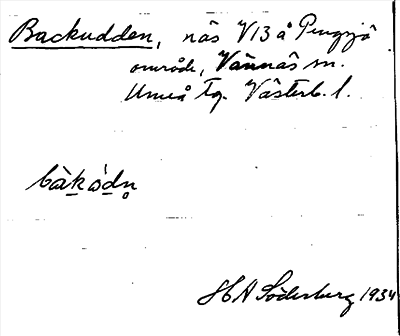 Backudden, näs V13 å Pengsjö
område, Vännäs sn.
Umeå tg. Västerb. l.
bàk̲ód̲n̥
H A Söderberg 1934